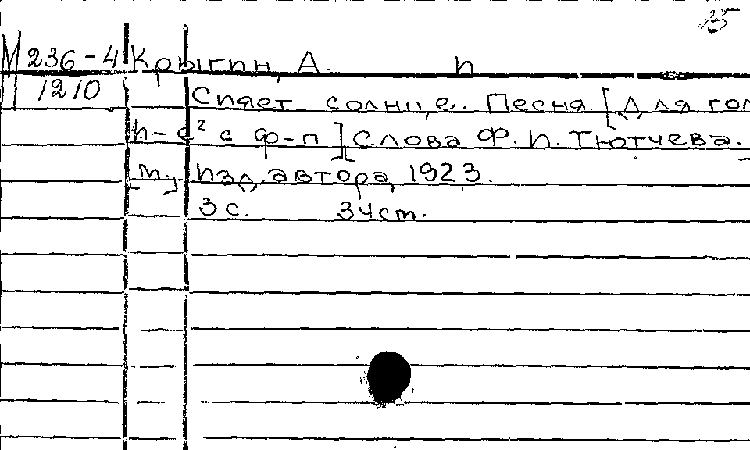 25
М 236-4 Крыгин, А. П
1210 Сияет солнце.. Песня [Для гол
h-e² с ф-п] Слова Ф. И. Тютчева.
Изд. автора, 1923.
3 с. 34 cm.